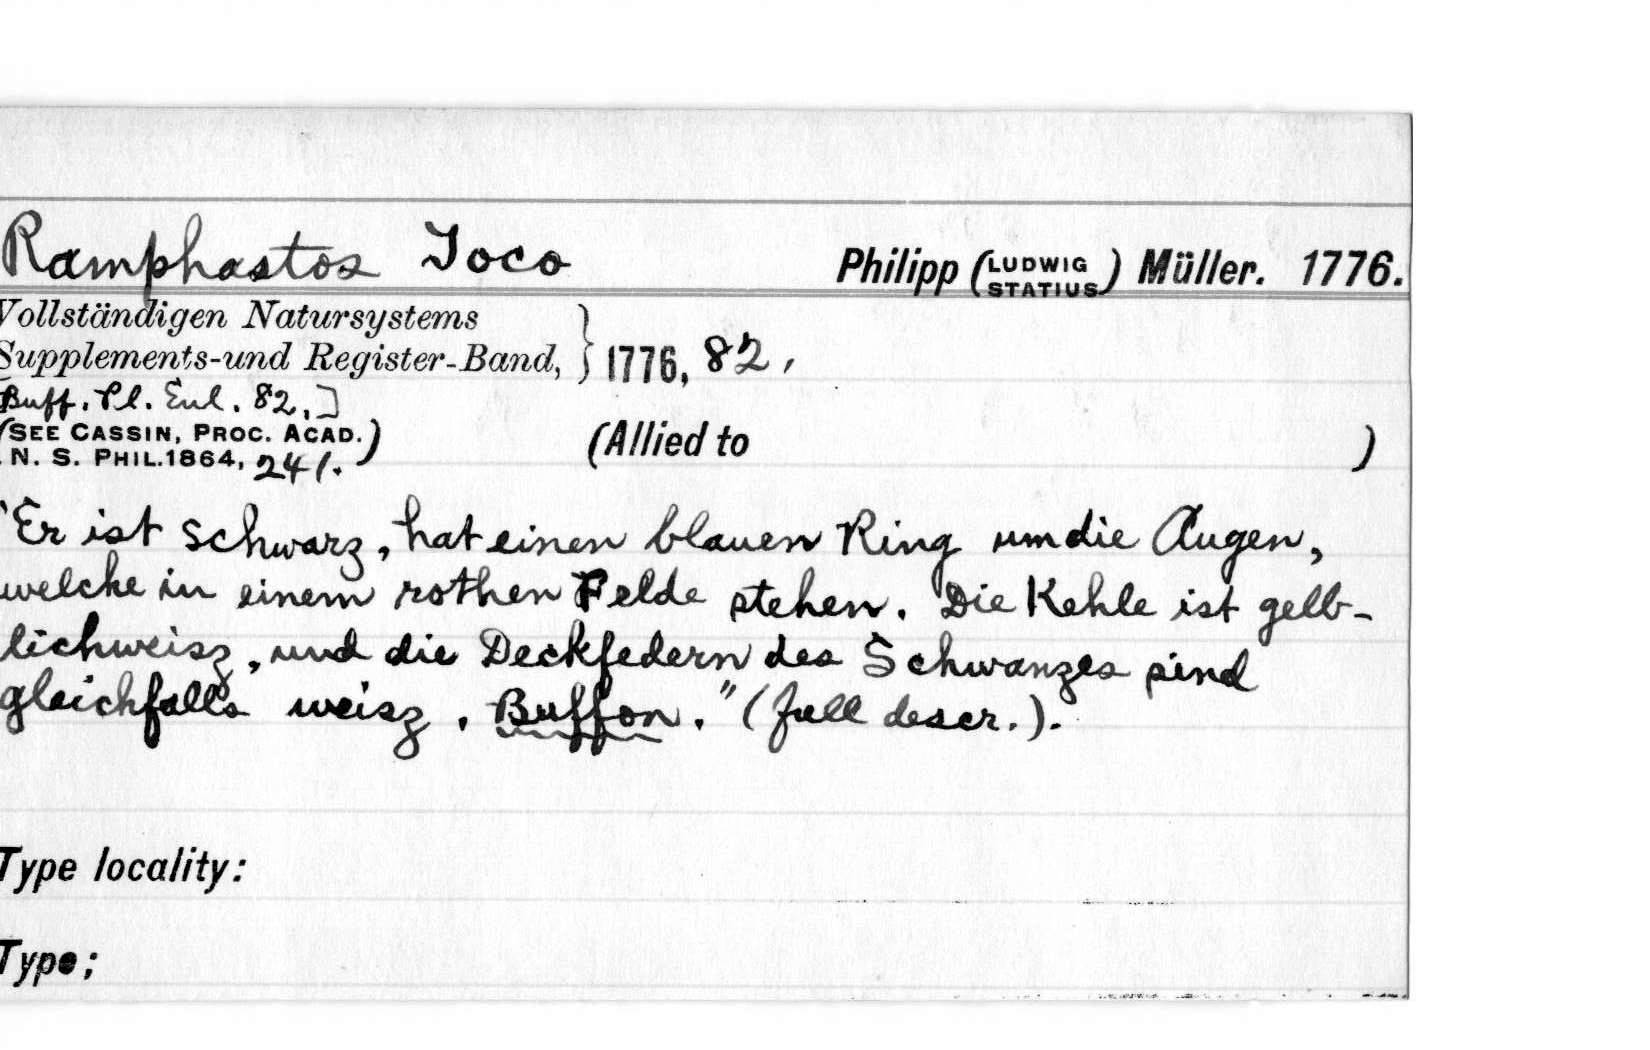 Ramphastos Toco Philipp (LUDWIG STATIUS) Müller. 1776.
Vollständigen Natursystems
Supplements-und Register-Band, } 1776, 82,
Buff. Pl. Enl. 82.]
(SEE CASSIN, PROC. ACAD.
N. S. PHIL. 1864, 241.) (Allied to )
"Er ist schwarz, hat einen blauen Ring um die Augen,
welche in einem rothen Felde stehen. Die Kehle ist gelb-
lichweisz, und die Deckfedern des Schwanzes sind
gleichfalls weisz. Buffon." (full descr.).
Type locality:
Type;